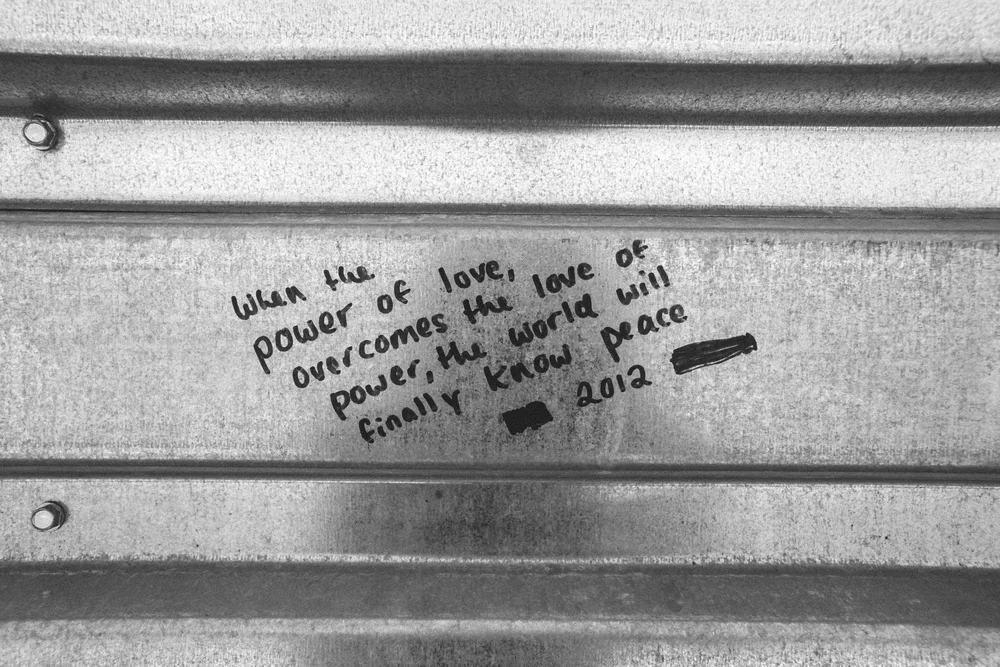 When the
power of love,
overcomes the love of
power, the world will
finally know peace
2012